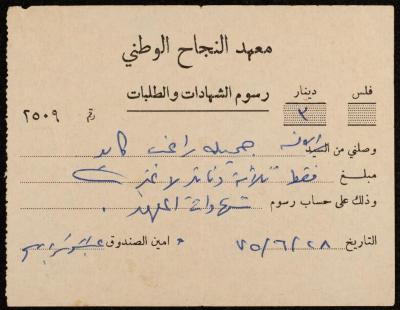 معهد النجاح الوطني
فلس دينار رسوم الشهادات والطلبات
٣ رقم ٢٥٠٩
وصلني من السيد الآنسة جميله راغب كايد
مبلغ فقط ثلاثة دنانير لا غير
وذلك على حساب رسوم شهادات المعهد .
التاريخ ٧٥/٦/٢٨ امين الصندوق